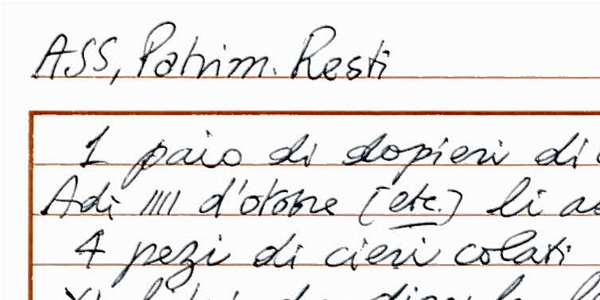 ASS, Patrim. Resti
1 paio di dopieri di
Adì IIII d'otobre [etc.] li
4 pezi di cieri colati